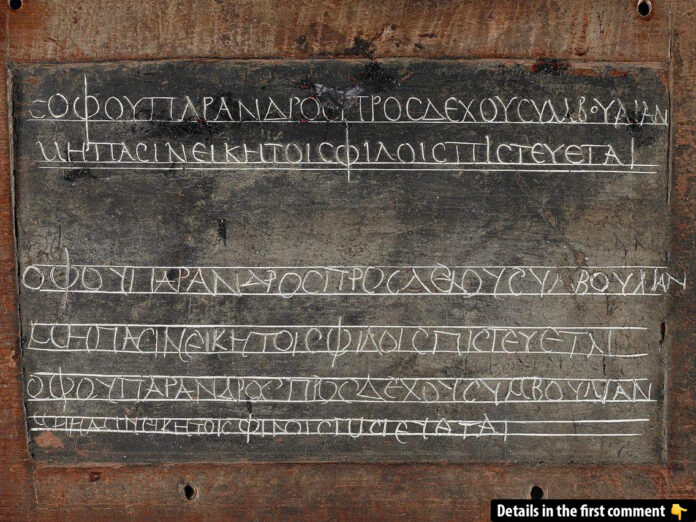 ϹΟΦΟΥΠΑΡΑΝΔΡΟϹΠΡΟϹΔΕΧΟΥϹΥΜΒΟΥΛΙΑΝ
ΜΗΠΑϹΙΝΕΙΚΗΤΟΙϹΦΙΛΟΙϹΠΙϹΤΕΥΕΤΑΙ
ΟΦΟΥΠΑΡΑΝΔΡΟϹΠΡΟϹΔΕΧΟΥϹΥΜΒΟΥΛΙΑΝ
ΜΗΠΑϹΙΝΕΙΚΗΤΟΙϹΦΙΛΟΙϹΠΙϹΤΕΥΕΤΑΙ
ΟΦΟΥΠΑΡΑΝΔΡΟϹΠΡΟϹΔΕΧΟΥϹΥΜΒΟΥΛΙΑΝ
ΜΗΠΑϹΙΝΕΙΚΗΤΟΙϹΦΙΛΟΙϹ
Details in the first comment 👇